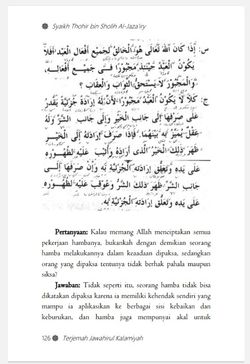 Syaikh Thohir bin Sholih Al-Jaza'iry
س: إِذَا كَانَ اللهُ تَعَالَى هُوَ الْخَالِقُ لِجَمِيْعِ أَفْعَالِ الْعَبْدِ أَفَلَا
يَكُوْنُ الْعَبْدُ حِيْنَئِذٍ مَجْبُوْرًا فِي جَمِيْعِ أَفْعَالِهِ،
وَالْمَجْبُوْرُ لَا يَسْتَحِقُّ الثَّوَابَ وَالْعِقَابَ؟
ج: كَلَّا لَا يَكُوْنُ الْعَبْدُ مَجْبُوْرًا لِأَنَّ لَهُ إِرَادَةً جُزْئِيَّةً يَقْدِرُ
عَلَى صَرْفِهَا إِلَى جَانِبِ الْخَيْرِ وَإِلَى جَانِبِ الشَّرِّ وَلَهُ
عَقْلٌ يُمَيِّزُ بِهِ بَيْنَهُمَا. فَإِذَا صَرَفَ إِرَادَتَهُ إِلَى الْخَيْرِ
ظَهَرَ ذٰلِكَ الْخَيْرُ الَّذِي أَرَادَهُ وَأُثِيْبَ عَلَيْهِ لِظُهُوْرِهِ
عَلَى يَدِهِ وَتَعَلُّقِ إِرَادَتِهِ الْجُزْئِيَّةِ بِهِ وَإِنْ صَرَفَهَا إِلَى
جَانِبِ الشَّرِّ ظَهَرَ ذٰلِكَ الشَّرُّ وَعُوْقِبَ عَلَيْهِ لِظُهُوْرِهِ
عَلَى يَدِهِ وَتَعَلُّقِ إِرَادَتِهِ الْجُزْئِيَّةِ بِهِ.
Pertanyaan: Kalau memang Allah menciptakan semua
pekerjaan hambanya, bukankah dengan demikian seorang
hamba melakukannya dalam keaadaan dipaksa, sedangkan
orang yang dipaksa tentunya tidak berhak pahala maupun
siksa?
Jawaban: Tidak seperti itu, seorang hamba tidak bisa
dikatakan dipaksa karena ia memiliki kehendak sendiri yang
mampu ia aplikasikan ke berbagai sisi kebaikan dan
keburukan, dan hamba juga mempunyai akal untuk
126 Terjemah Jawahirul Kalamiyah